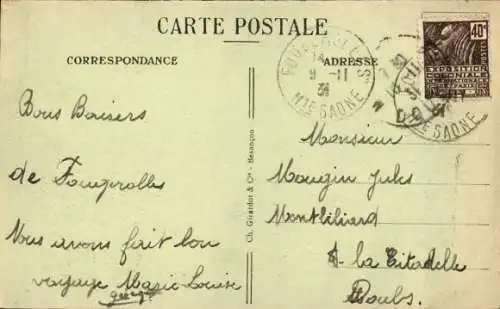 CARTE POSTALE
CORRESPONDANCE
ADRESSE
FOUGEROLLES
9 -11
31
HTE SAONE
40c
POSTES
EXPOSITION
COLONIALE
INTERNATIONALE
31
HTE SAONE
Bons Baisers
de Fougerolles
Nous avons fait bon
voyage Marie Louise
Ch. Girardot & Cie - Besançon
Monsieur
Mougin Jules
Montbliliard
à la Citadelle
Doubs.